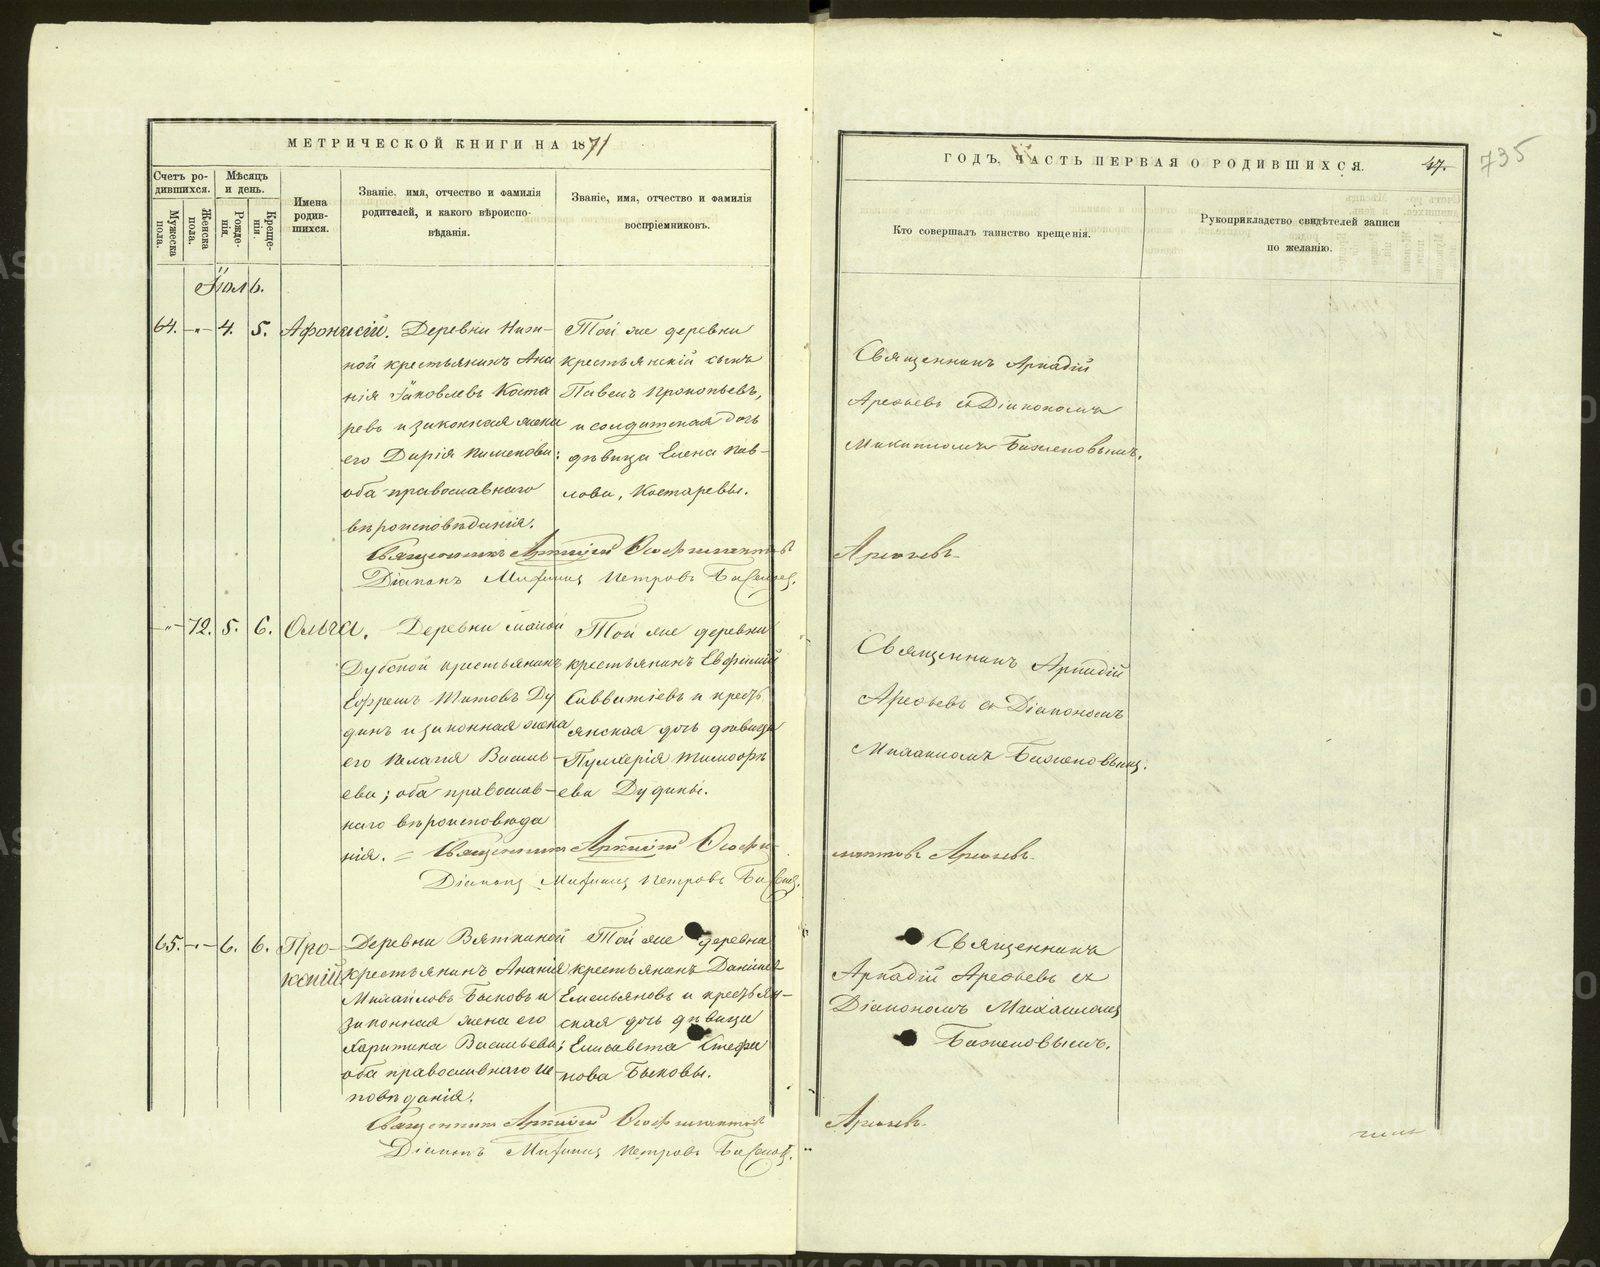 МЕТРИЧЕСКОЙ КНИГИ НА 1871
ГОДЪ, ЧАСТЬ ПЕРВАЯ О РОДИВШИХСЯ.
47.
735
Счетъ ро-
дившихся.
Мѣсяцъ
и день.
Мужеска
пола.
Женска
пола.
Рожде-
нія.
Креще-
нія.
Имена
родив-
шихся.
Званіе, имя, отчество и фамилія
родителей, и какого вѣроиспо-
вѣданія.
Званіе, имя, отчество и фамилія
воспріемниковъ.
Кто совершалъ таинство крещенія.
Рукоприкладство свидѣтелей записи
по желанію.
Іюль.
64. -"- 4. 5. Афонасій.
Деревни Ниж-
ной крестьянинъ Ана
нія Яковлевъ Коста
ревъ и законная жена
его Дарія Пименова:
оба православнаго
вѣроисповѣданія.
Той же деревни
крестьянскій сынъ
Павелъ Прокопьевъ,
и солдатская дочь
дѣвица Елена Пав-
лова, Костаревы.
Священникъ Аркадій
Арефьевъ съ Діакономъ
Михаиломъ Баженовымъ.
Священникъ Аркадій Феофилактовъ
Арефьевъ
Діаконъ Михаилъ Петровъ Баженовъ.
-"- 72. 5. 6. Ольга.
Деревни малой
Дубской крестьянинъ
Ефремъ Титовъ Ду
динъ и законная жена
его Пелагія Василь-
ева; оба православ-
наго вѣроисповѣда
нія.
Той же деревни
крестьянинъ Евфимій
Савватіевъ и кресть
янская дочь дѣвица
Пулхерія Тимофѣ
ева Дудины.
Священникъ Аркадій
Арефьевъ съ Діакономъ
Михаиломъ Баженовымъ.
Священникъ Аркадій Феофи-
лактовъ Арефьевъ
Діаконъ Михаилъ Петровъ Баженовъ.
65. -"- 6. 6. Про-
копій
Деревни Вяткиной
крестьянинъ Ананія
Михайловъ Быковъ и
законная жена его
Харитина Васильева;
оба православнаго ис-
повѣданія.
Той же деревни
крестьянинъ Даніилъ
Емельяновъ и крестьян-
ская дочь дѣвица
Елисавета Стефа
нова Быковы.
Священникъ
Аркадій Арефьевъ съ
Діакономъ Михаиломъ
Баженовымъ.
Священникъ Аркадій Феофилактовъ
Арефьевъ
Діаконъ Михаилъ Петровъ Баженовъ.